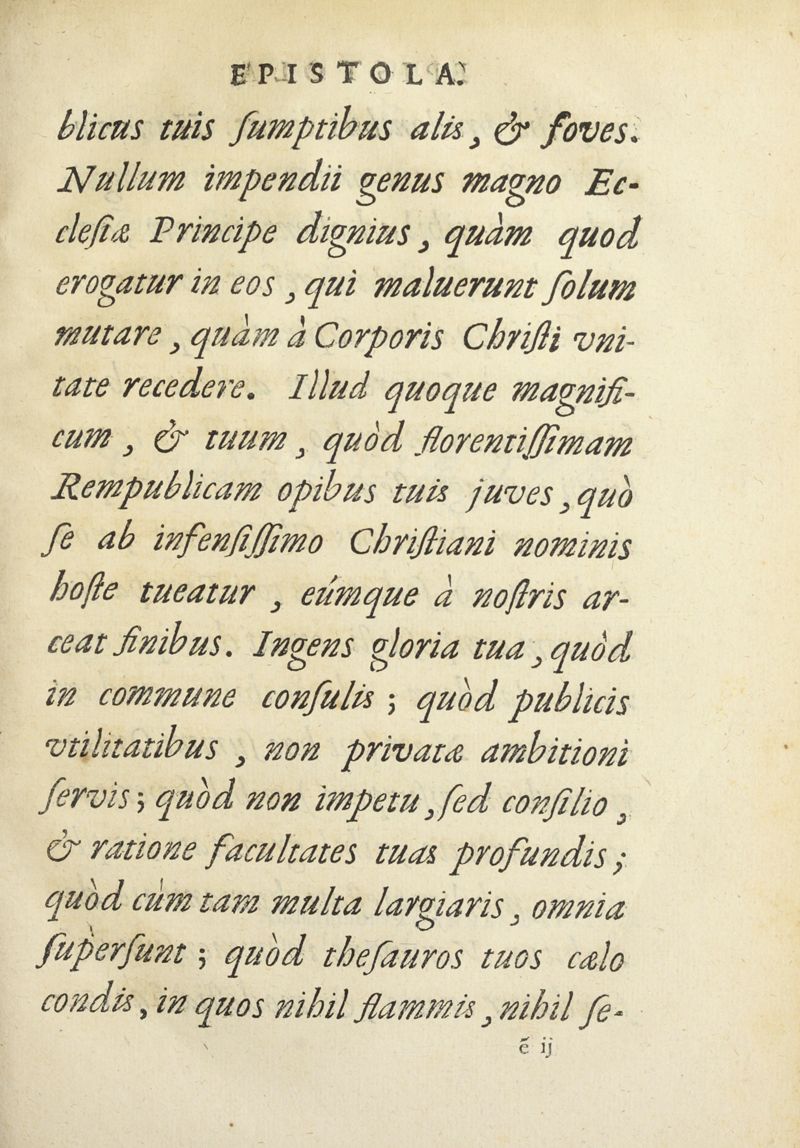 EPISTOLA.
blicus tuis ſumptibus alis, & foves.
Nullum impendii genus magno Ec-
cleſiæ Principe dignius, quàm quod
erogatur in eos, qui maluerunt ſolum
mutare, quàm à Corporis Chriſti vni-
tate recedere. Illud quoque magnifi-
cum, & tuum, quòd florentiſſimam
Rempublicam opibus tuis juves, quò
ſe ab infenſiſſimo Chriſtiani nominis
hoſte tueatur, eúmque à noſtris ar-
ceat finibus. Ingens gloria tua, quòd
in commune conſulis; quòd publicis
vtilitatibus, non privatæ ambitioni
ſervis; quòd non impetu, ſed conſilio,
& ratione facultates tuas profundis;
quòd cùm tam multa largiaris, omnia
ſuperſunt; quòd theſauros tuos cælo
condis, in quos nihil flammis, nihil ſe-
ẽ ij